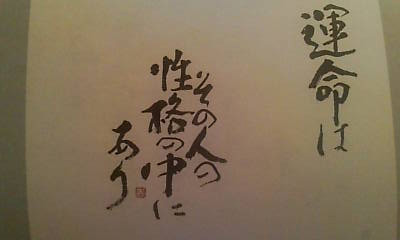 運命は
その人の
性格の中に
あり